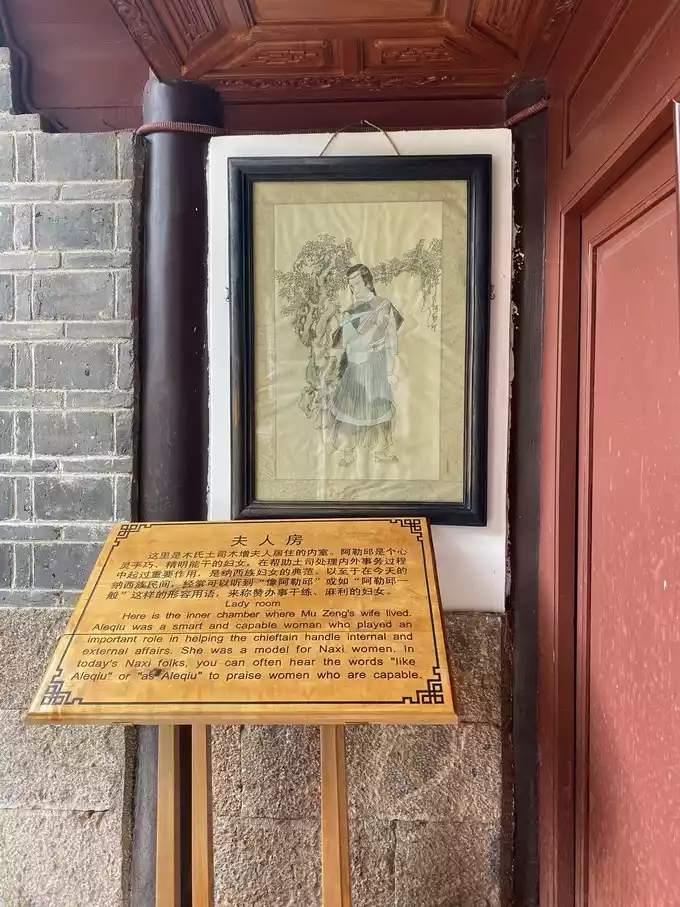 夫人房
这里是木氏土司木增夫人居住的内室。阿勒邱是个心
灵手巧、精明能干的妇女。在帮助土司处理内外事务过程
中起过重要作用，是纳西族妇女的典范。以至于在今天的
纳西族民间，经常可以听到“像阿勒邱”或如“阿勒邱一
般”这样的形容用语，来称赞办事干练、麻利的妇女。
Lady room
Here is the inner chamber where Mu Zeng's wife lived.
Aleqiu was a smart and capable woman who played an
important role in helping the chieftain handle internal and
external affairs. She was a model for Naxi women. In
today's Naxi folks, you can often hear the words "like
Aleqiu" or "as Aleqiu" to praise women who are capable.